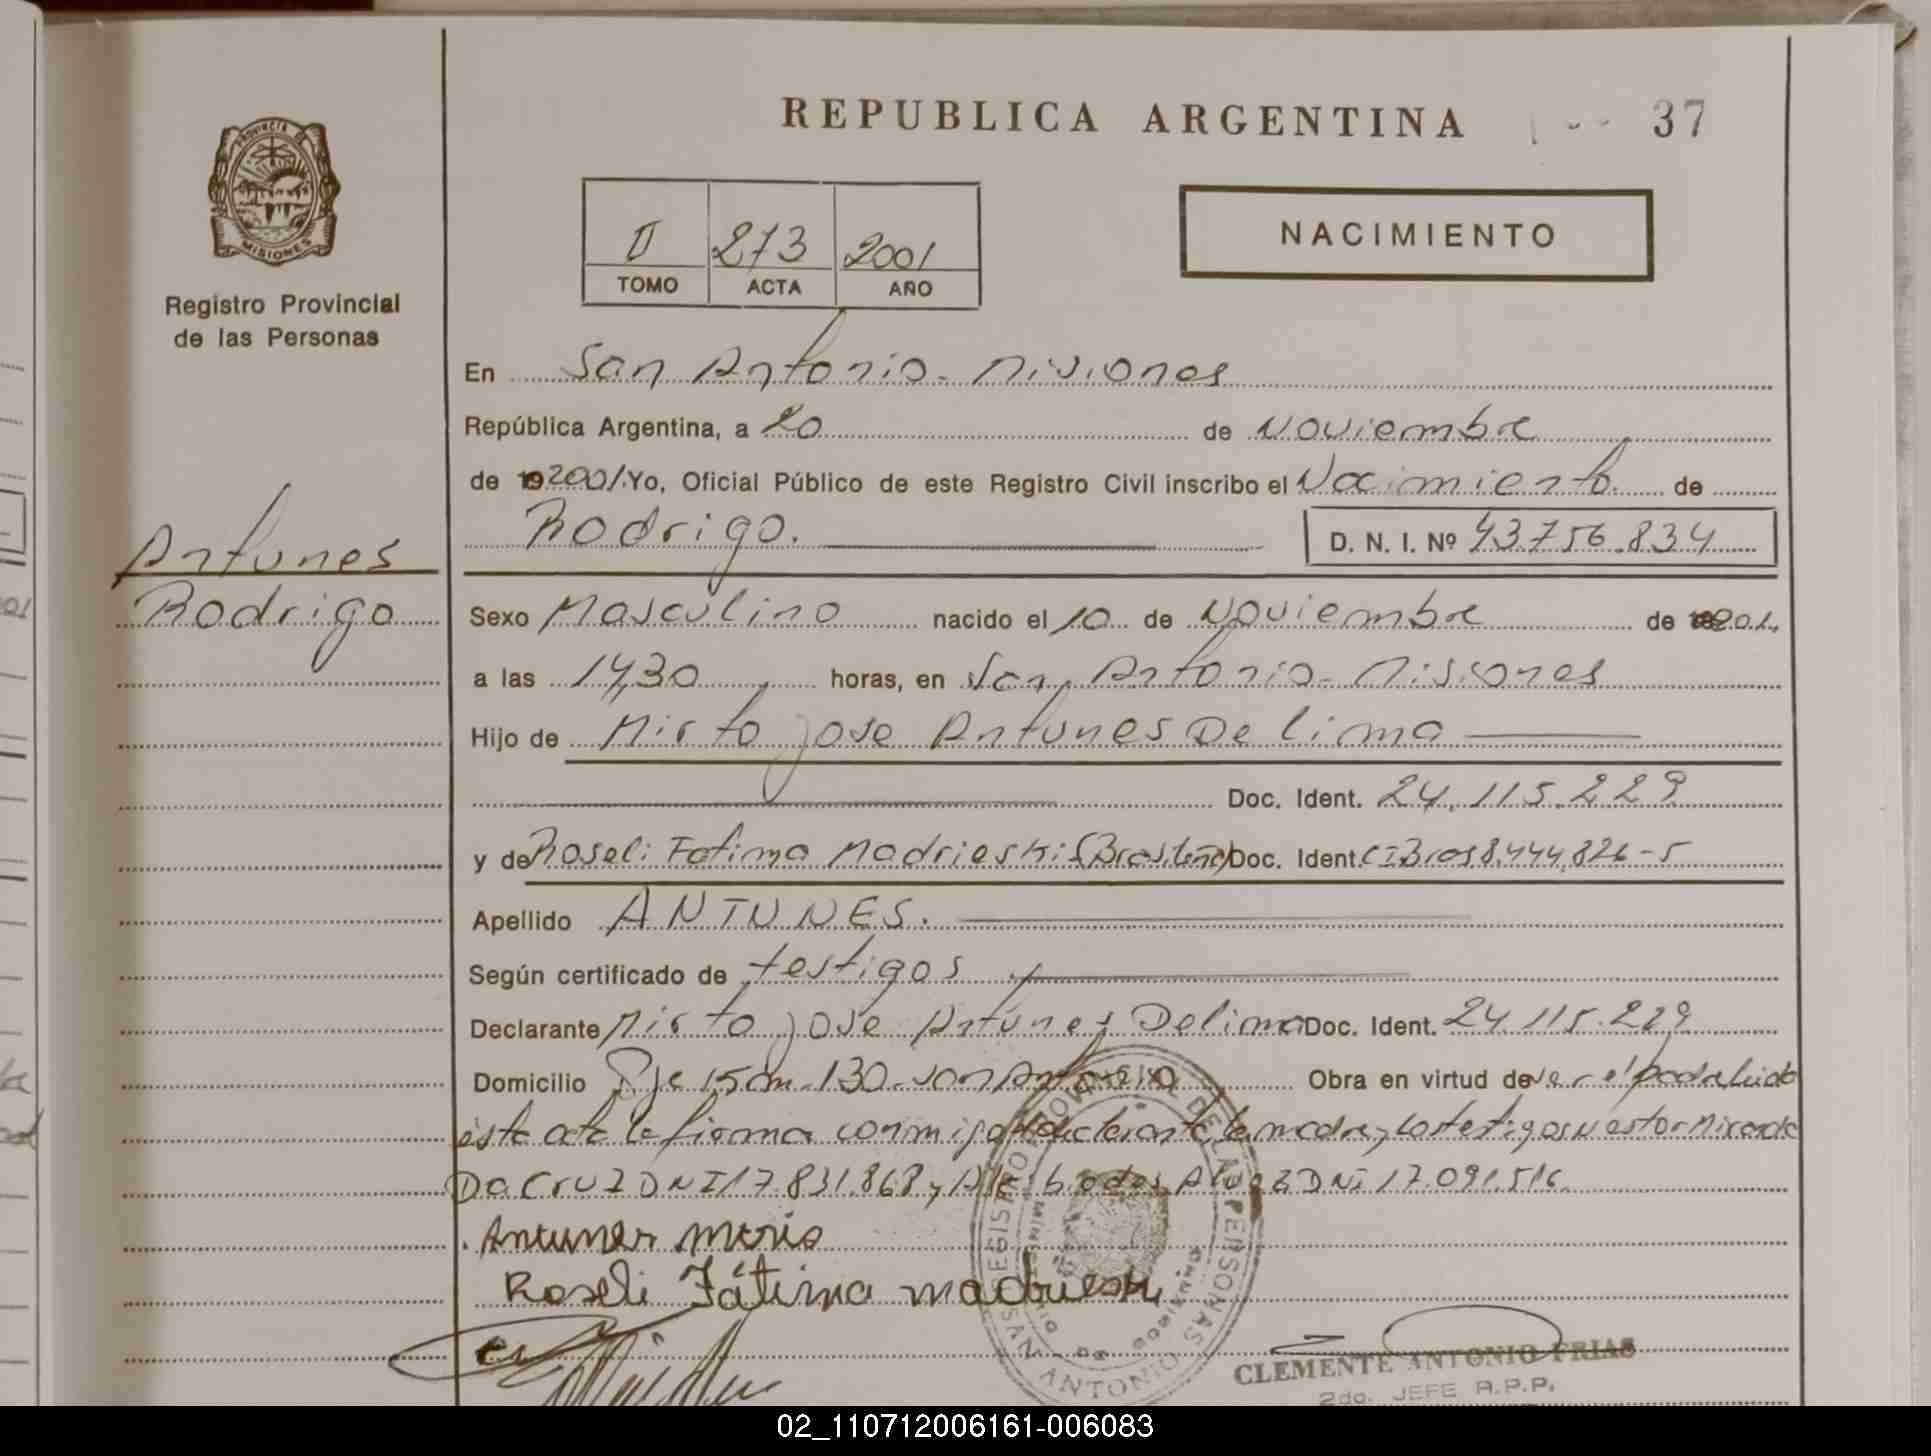 REPUBLICA ARGENTINA
37
PROVINCIA DE
MISIONES
Registro Provincial
de las Personas
II 273 2001
TOMO ACTA AÑO
NACIMIENTO
En San Antonio - Misiones
República Argentina, a 20 de Noviembre
de 19 2001. Yo, Oficial Público de este Registro Civil inscribo el Nacimiento de
Rodrigo.
D. N. I. Nº 43.756.834
Antunes
Rodrigo
Sexo Masculino nacido el 10 de Noviembre de 2001.
a las 14,30 horas, en San Antonio - Misiones
Hijo de Mirto Jose Antunes De Lima
Doc. Ident. 24.115.229
y de Roseli Fatima Madrieski (Brasileña) Doc. Ident. CI Bras 8.444.826-5
Apellido ANTUNES.
Según certificado de testigos
Declarante Mirto Jose Antunes De Lima Doc. Ident. 24.115.229
Domicilio Pje 15 m-130-San Antonio Obra en virtud de ser el padre leida
ésta acta la firma conmigo el declarante, la madre y los testigos Nestor Miranda
Da Cruz DNI 17.831.868 y DNI 17.091.516.
Antunes Mirto
Roseli Fátima Madrieski
REGISTRO PROVINCIAL DE LAS PERSONAS
SAN ANTONIO
CLEMENTE ANTONIO FRIAS
2do. JEFE R.P.P.
02_110712006161-006083